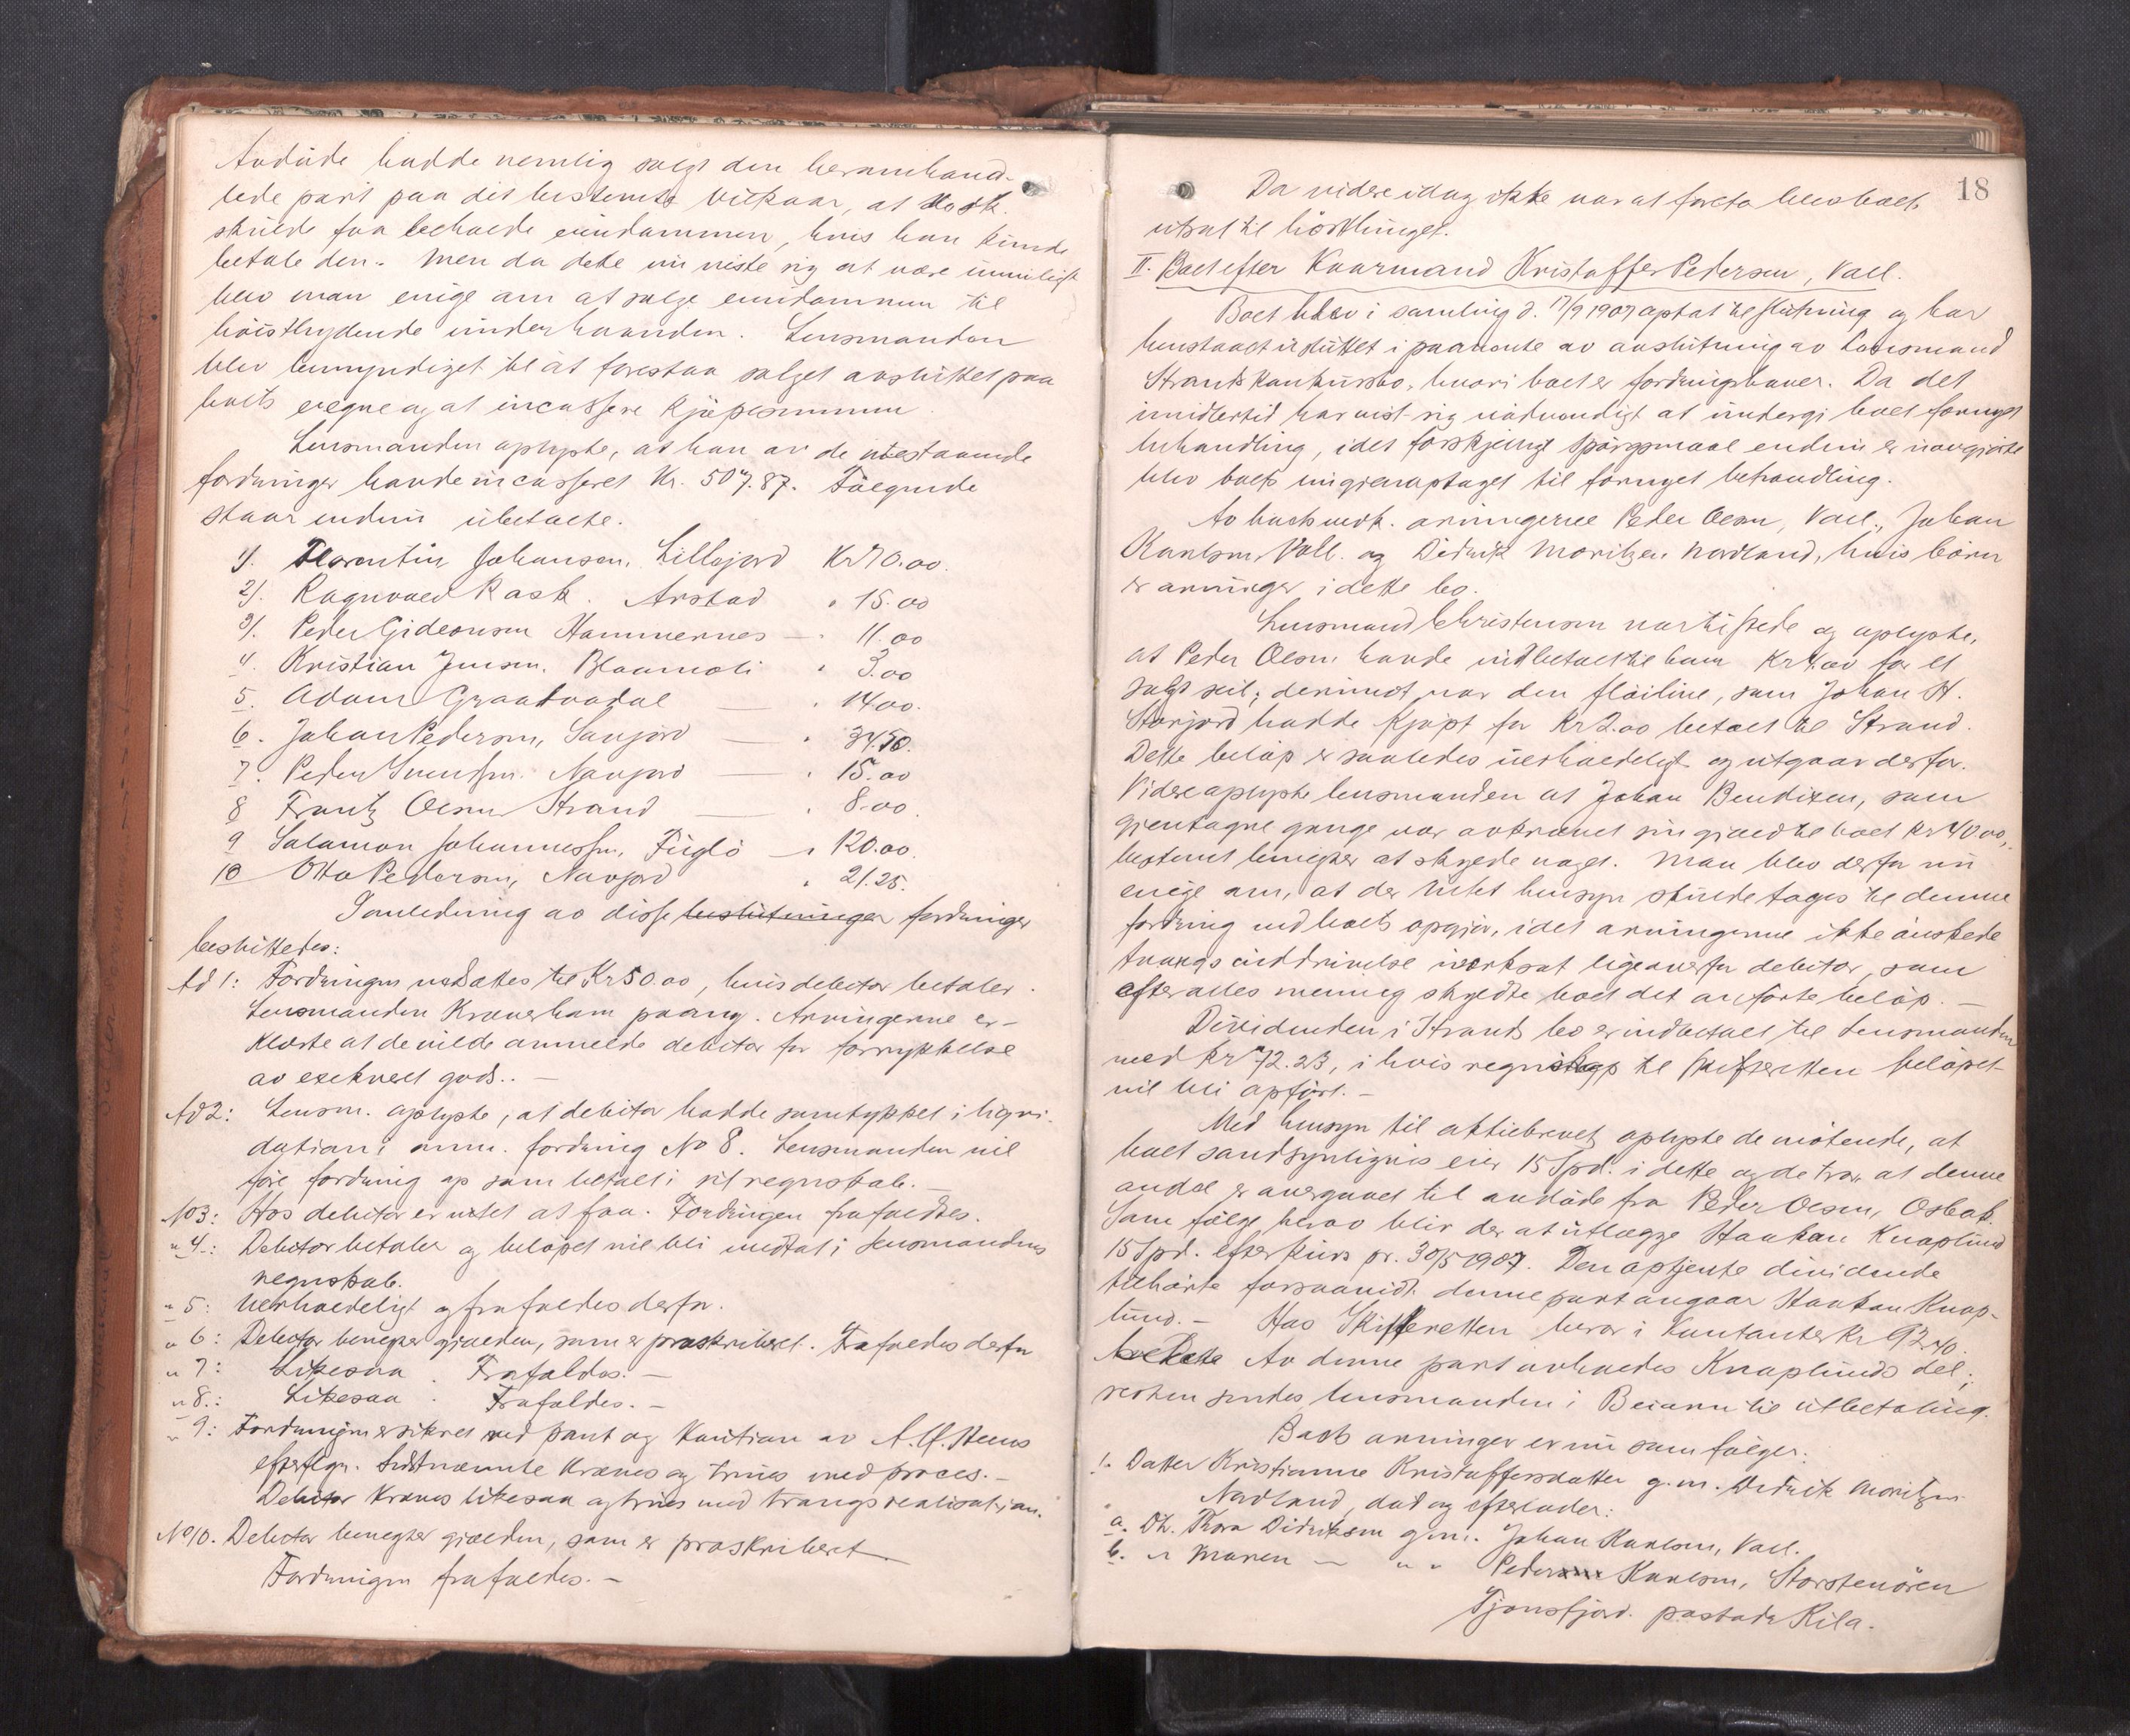 Avdøde hadde nemlig solgt den heromhand-
lede part paa det bestemte vilkaar, at
skulde faa beholde eiendommen, hvis han kunde
betale den. Men da dette nu viste sig at være umuligt
blev man enige om at sælge eiendommen til
høistbydende underhaanden. Lensmanden
blev bemyndiget til at forestaa salget avsluttet paa
boets vegne og at incassere kjøpesummen.
Lensmanden oplyste, at han av de utestaaende
fordringer havde incasseret Kr. 507.87. Følgende
staar endnu ubetalte.
1). Florentin Johansen, Lillejord Kr 70.00.
2). Ragnvald Rask. Arstad " 15.00
3). Peder Gideonsen Hammernes — " 11.00
4. Kristian Jensen. Blaamoli " 3.00
5. Adam Graataadal — " 14.00.
6. Johan Pedersen, Sanjord — " 34.50.
7. Peder Svendsen. Navjord — " 15.00
8 Frantz Olsen Strand — " 8.00.
9 Salamon Johannessen, Fuglø — " 120.00.
10 Otto Pedersen, Navjord " 21.25.
I anledning av disse beslutninger fordringer
besluttedes:
Ad 1: Fordringen nedsattes til Kr 50.00, hvis debitor betaler.
Lensmanden kræver ham paany. Arvingerne er-
klærte at de vilde anmelde debitor for forrykkelse
av exekvert gods. —
Ad 2: Lensm. oplyste, at debitor hadde samtykket i liqvi-
dation i anm. fordring No 8. Lensmanden vil
føre fordring op som betalt i sit regnskab. —
No 3: Hos debitor er intet at faa. Fordringen frafaldtes.
" 4: Debitor betaler og beløpet vil bli medtat i Lensmandens
regnskab.
" 5: Uerholdeligt og frafaldes derfor.
" 6: Debitor benegter gjælden, som er præskriberet. Frafaldes derfor
" 7: Likesaa. Frafaldes. —
" 8: Likesaa. Frafaldes. —
" 9: Fordringen er sikret ved pant og kaution av
efterflgr. Sidstnævnte kræves og trues med proces. —
Debitor kræves likesaa og trues med tvangsrealisation.
No 10. Debitor benegter gjælden, som er præskriberet.
Fordringen frafaldes. —
18
Da videre idag ikke var at foreta blev boets
utsat til
II. Boet efter Kaarmand Kristoffer Pedersen, Vall.
Boet blev i samling d. 17/9 1907 optat til slutning og har
henstaaet usluttet i paavente av avslutning av Lensmand
Strands konkursbo, hvori boet er fordringshaver. Da det
imidlertid har vist sig nødvendigt at undergi boet fornyet
behandling, idet forskjellige spørgsmaal endnu er uavgjorte
blev boets uigjenoptaget til fornyet behandling.
Av boets vedk. arvingerne Peder Olsen, Vall., Johan
Karlsen, Vall. og Didrik Moritzen Nordland, hvis børn
er arvinger i dette bo.
Lensmand Christensen var tilstede og oplyste,
at Peder Olsen havde indbetalt til ham Kr 4.00 for et
solgt seil; derimot var den fløiline, som Johan H.
Storjord hadde kjøpt for Kr 2.00 betalt til Strand.
Dette beløp er saaledes uerholdeligt og utgaar derfor.
Videre oplyste lensmanden at Johan Bendixen, som
gjentagne gange var avkrævet sin gjæld til boet Kr 40.00,
bestemt benegter at skylde noget. Man blev derfor nu
enige om, at der intet hensyn skulde tages til denne
fordring ved boets opgjør, idet arvingerne ikke ønskede
tvangsinddrivelse iverksat ligeoverfor debitor, som
efter alles mening skyldte boet det anførte beløp. —
Dividenden i Strands bo er indbetalt til Lensmanden
med Kr 72.23, i hvis regnskap til skifteretten beløpet
vil bli opført. —
Med hensyn til aktiebrevet oplyste de møtende, at
boet sandsynligvis eier 15 Spd. i dette og de tror, at denne
andel er overgaaet til avdøde fra Peder Olsen, Osbak.
Som følge herav blir der at utlægge Haakon Knaplund
15 Spd. efter kurs pr. 30/5 1907. Den optjente dividende
tilhørte forsaavidt denne part angaar Haakon Knap-
lund. — Hos Skifteretten beror i kontanter Kr 92.40.
Av denne part avholdes Knaplunds del;
resten sendes lensmanden i Beiarn til utbetaling.
Boets arvinger er nu som følger:
1. Datter Kristianne Kristoffersdatter g. m. Didrik Moritzen
Nordland, død og efterlader:
a. Dtr. Thora Didriksen g. m. Johan Karlsen, Vall.
b. " Maren — " " Peder Karlsen, Storstenøren
Tjonsfjord. poståpn Kila.